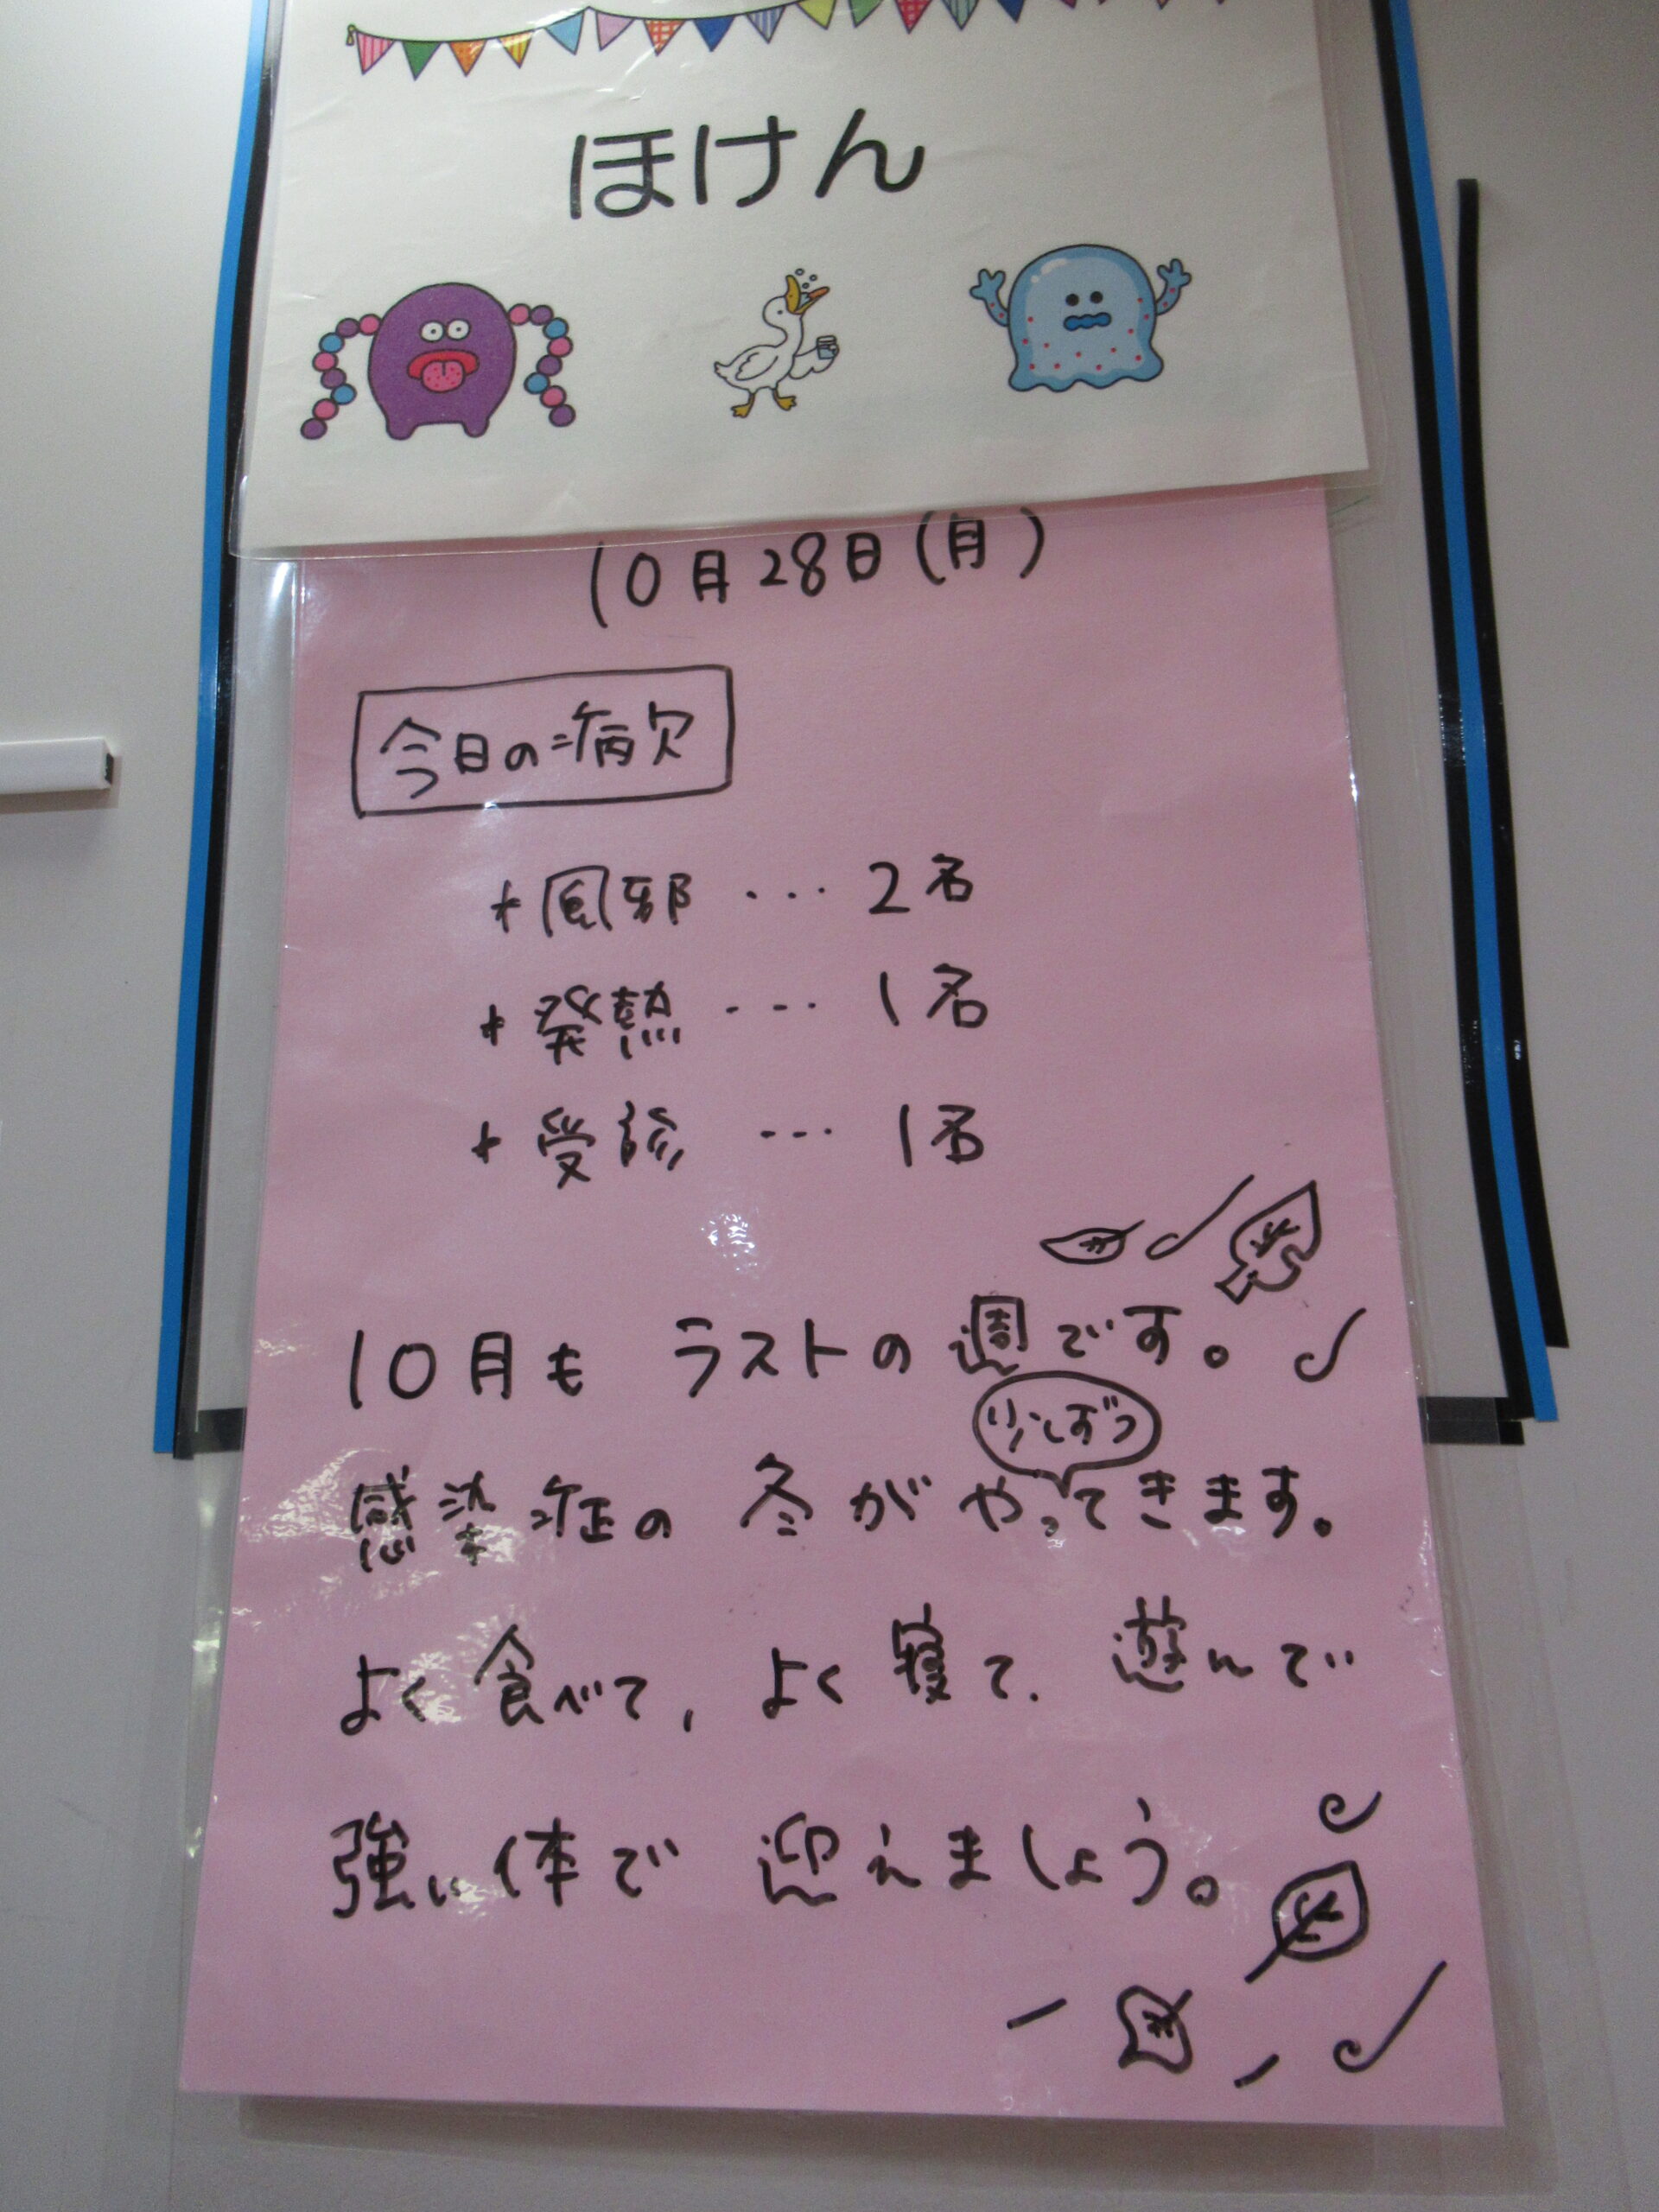 ほけん
10月28日(月)
今日の病欠
+ 風邪 ・・・ 2名
+ 発熱 ・・・ 1名
+ 受診 ・・・ 1名
10月も ラストの週です。
少しずつ
感染症の 冬がやってきます。
よく食べて、よく寝て、遊んで
強い体で 迎えましょう。